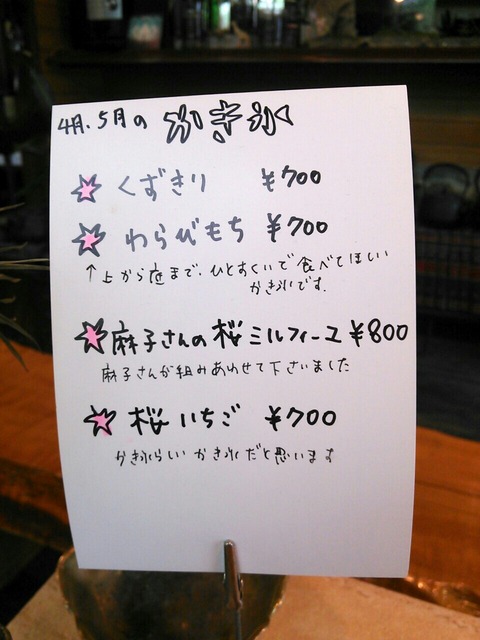 4月、5月の かき氷
くずきり ¥700
わらびもち ¥700
↑上から底まで、ひとすくいで食べてほしい
かき氷です。
麻子さんの桜ミルフィーユ ¥800
麻子さんが組みあわせて下さいました
桜いちご ¥700
かき氷らしいかき氷だと思います